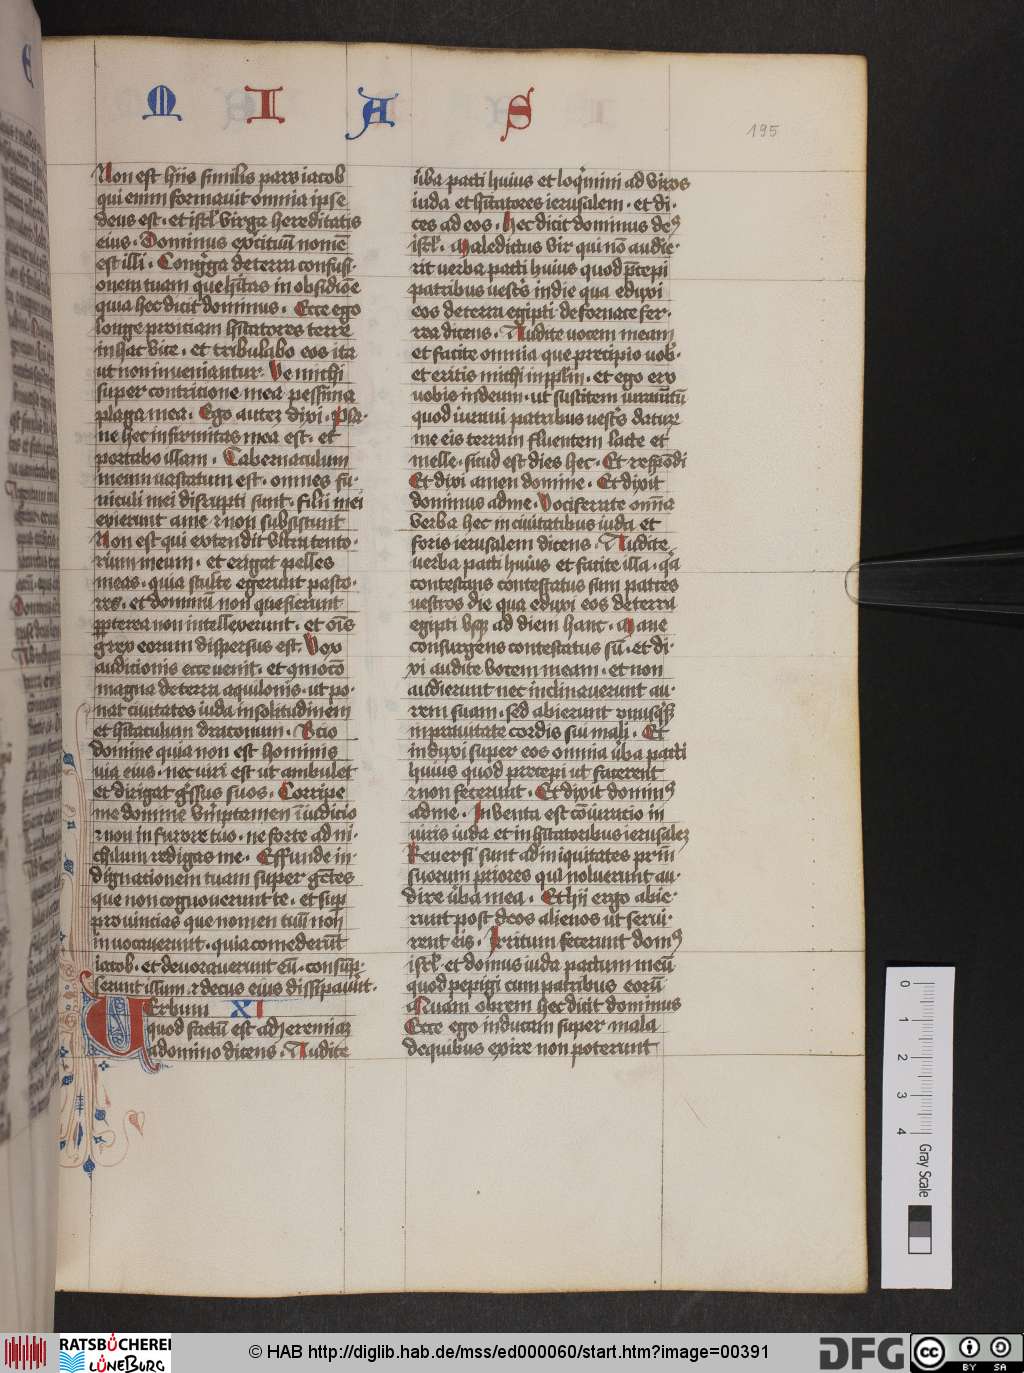 M I A S
195
Non est hiis similis pars iacob
qui enim formauit omnia ipse
deus est · et isrl' virga hereditatis
eius · Dominus exercituū nomē
est illi · Congrga de terra confusi-
onem tuam que hītas in obsidiōe
quia hec dicit dominus · Ecce ego
longe proiciam hītatores terre
in hac vice · et tribulabo eos ita
ut non inueniantur · Ve michi
super contricione mea pessima
plaga mea · Ego autez dixi · Pla-
ne hec infirmitas mea est · et
portabo illam · Tabernaculum
meum uastatum est · omnes fu-
niculi mei disrupti sunt · filii mei
exierunt a me et non subsistunt
Non est qui extendit vltra tento-
rium meum · et erigat pelles
meas · quia stulte egerunt pasto-
res · et dominū non quesierunt
ppterea non intellexerunt · et oīs
grex eorum dispersus est · Vox
auditionis ecce uenit · et qmocō
magna de terra aquilonis · ut po-
nat ciuitates iuda in solitudinem
et hītaculum draconum · Scio
domine quia non est hominis
uia eius · nec uiri est ut ambulet
et dirigat gssus suos · Corripe
me domine vmptamen ī iudicio
et non in furore tuo · ne forte ad ni-
chilum redigas me · Effunde in-
dignationem tuam super gētes
que non cognouerunt te · et sup
prouincias que nomen tuū non
inuocauerunt · quia comederūt
iacob · et deuorauerunt eū · consūp-
serunt illum et decus eius dissipauūt ·
Verbum XI
quod factū est ad Jeremiaz
a domino dicens · Audite
ūba pacti huius et loqmini ad viros
iuda et hītatores ierusalem · et di-
ces ad eos · Hec dicit dominus deus
isrl' · Maledictus vir qui nō audie-
rit uerba pacti huius quod pcepi
patribus uestis in die qua eduxi
eos de terra egipti de fornace fer-
rea dicens · Audite uocem meam
et facite omnia que precipio uob'
et eritis michi in pplm · et ego ero
uobis in deum · ut suscitem iuramtū
quod iuraui patribus uestis daturū
me eis terram fluentem lacte et
melle · sicud est dies hec · Et respōdi
Et dixi amen domine · Et dixit
dominus ad me · Vociferare omīa
verba hec in ciuitatibus iuda et
foris ierusalem dicens · Audite
uerba pacti huius et facite illa · qa
contestans contestatus sum patres
uestros die qua eduxi eos de terra
egipti vsq ad diem hanc · Mane
consurgens contestatus sū · et di-
xi audite vocem meam · et non
audierunt nec inclinauerunt au-
rem suam · sed abierunt vnusqsq
in prauitate cordis sui mali · Et
induxi super eos omnia ūba pacti
huius quod precepi ut facerent
et non fecerunt · Et dixit dominus
ad me · Inuenta est cōiuratio in
uiris iuda et in hītatoribus ierusalez
Reuersi sunt ad iniquitates prim
suorum priores qui noluerunt au-
dire ūba mea · Et hij ergo abie-
runt post deos alienos ut serui-
rent eis · Irritum fecerunt domus
isrl' et domus iuda pactum meū
quod pepigi cum patribus eorū
Quam obrem hec dicit dominus
Ecce ego inducam super mala
de quibus exire non poterunt
0 1 2 3 4 Gray Scale
RATSBÜCHEREI LÜNEBURG
© HAB http://diglib.hab.de/mss/ed000060/start.htm?image=00391
DFG
cc BY SA